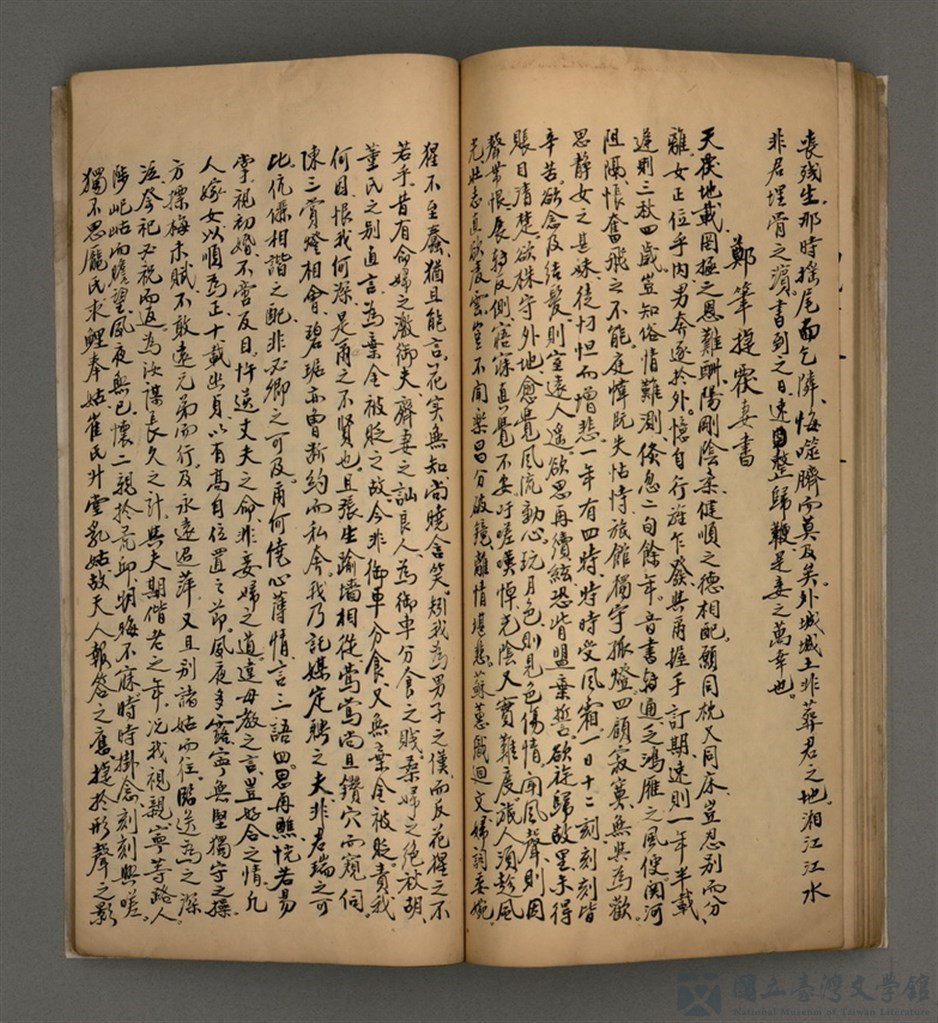 喪殘生。那時搖尾面乞隣、悔噬臍而莫及矣。外城城土非葬君之地。湘江江水
非君埋骨之濱。書到之日、速整歸鞭是妾之萬幸也。
鄭筆提覆妻書
天覆地載罔極之恩難酬、陽剛陰柔健順之德相配、願同枕又同床、豈忍別而分
離。女正位乎內、男奔逐於外。憶自行旌乍發、與爾握手訂期、遠則一年半載
遲則三秋四歲、豈知俗情難測、倏忽二旬餘年。音書雖通、乏鴻雁之風便、關河
阻隔、悵奮飛之不能。庭幃既失怙恃、旅館獨守孤燈。四顧寂寞、無與為歡
思靜女之其姝、徒忉怛而增悲。一年有四時、時時受風霜、一日十二刻、刻刻皆
辛苦。欲念及結髮、則室遠人遙。欲思再續絃、恐背盟棄誓。欲旋歸故里、未得
賬目清楚、欲株守外地、愈覺風流動心。玩月色、則見色傷情、聞風聲、則因
聲帶恨。展轉反側、寤寐真覺不安。吁嗟嘆悼、光陰又實難度。旅人須趁風
光、壯志直欲凌雲。豈不聞樂昌分破鏡、離情堪悲、蘇蕙織迴文、婦詞委婉
猩不至蠢、猶且能言、花实無知、尚曉含笑。矧我為男子之僕、而反花猩之不
若乎。昔有命婦之激御夫、齊妻之訕良人、為御車分食之賤。桑婦之絕秋胡、
董氏之別直言、為棄金被貶之故、今非御車分食、又無棄金被貶、責我
何目、恨我何深、是爾之不賢也。且張生踰墻相從、鶯鶯尚且鑽穴而窺伺。
陳三賞燈相會、碧琚亦曾斷約而私奔。我乃託媒定聘之夫、非君瑞之可
比、伉儷相諧之配、非必卿之可及。爾何僥心薄情、言三語四。思再醮、恍若易
掌、視初婚、不啻反目。忤逆丈夫之命、非妾婦之道、違母教之言、豈好合之情。凡
人嫁女以順為正、十載出貞、以有高自位置之節、夙夜多露、寧無堅獨守之操
方摽梅未賦、不敢遠兄弟而行、及永遠遇萍、又且別諸姑而往、臨送為之深
泣、祭祀必祝而返。為汝謀長久之計、與夫期偕老之年、况我視親、寧等路人。
陟屺岵而瞻望、夙夜無已、懷二親於荒邱、明晦不寐、時時掛念、刻刻興嗟。
獨不思龐氏求鯉奉姑、崔氏升堂乳姑、故天人報答之應、捷於形聲之影
國立臺灣文學館
National Museum of Taiwan Literature